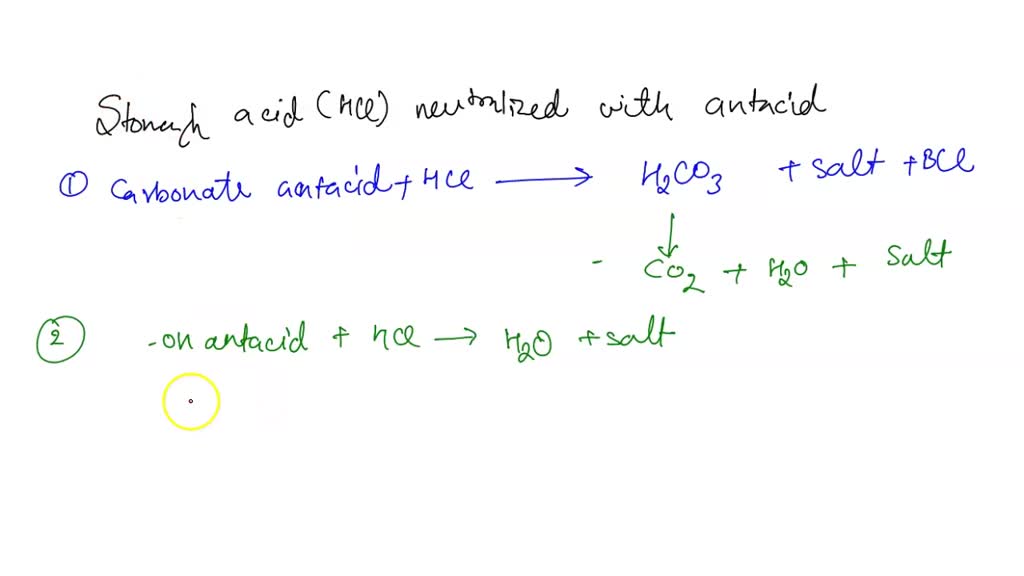 Stomach acid (HCl) neutralized with antacid
① Carbonate antacid + HCl ⟶ H₂CO₃ + salt + BCl
↓
- CO₂ + H₂O + Salt
② -OH antacid + HCl ⟶ H₂O + salt